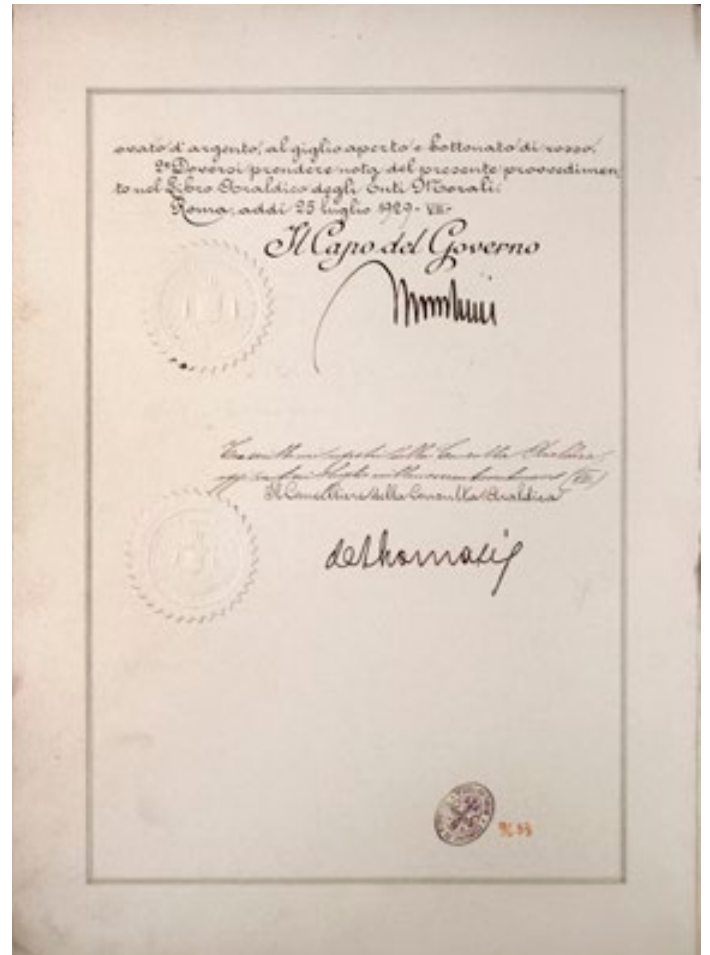 ovato d'argento, al giglio aperto e bottonato di rosso.
2º Doversi prendere nota del presente provvedimen
to nel Libro Araldico degli Enti Morali.
Roma, addì 25 luglio 1929 - VII -
Il Capo del Governo
Mussolini
Consulta Araldica
oggi
(VII)
Il Cancelliere della Consulta Araldica
deThomasis